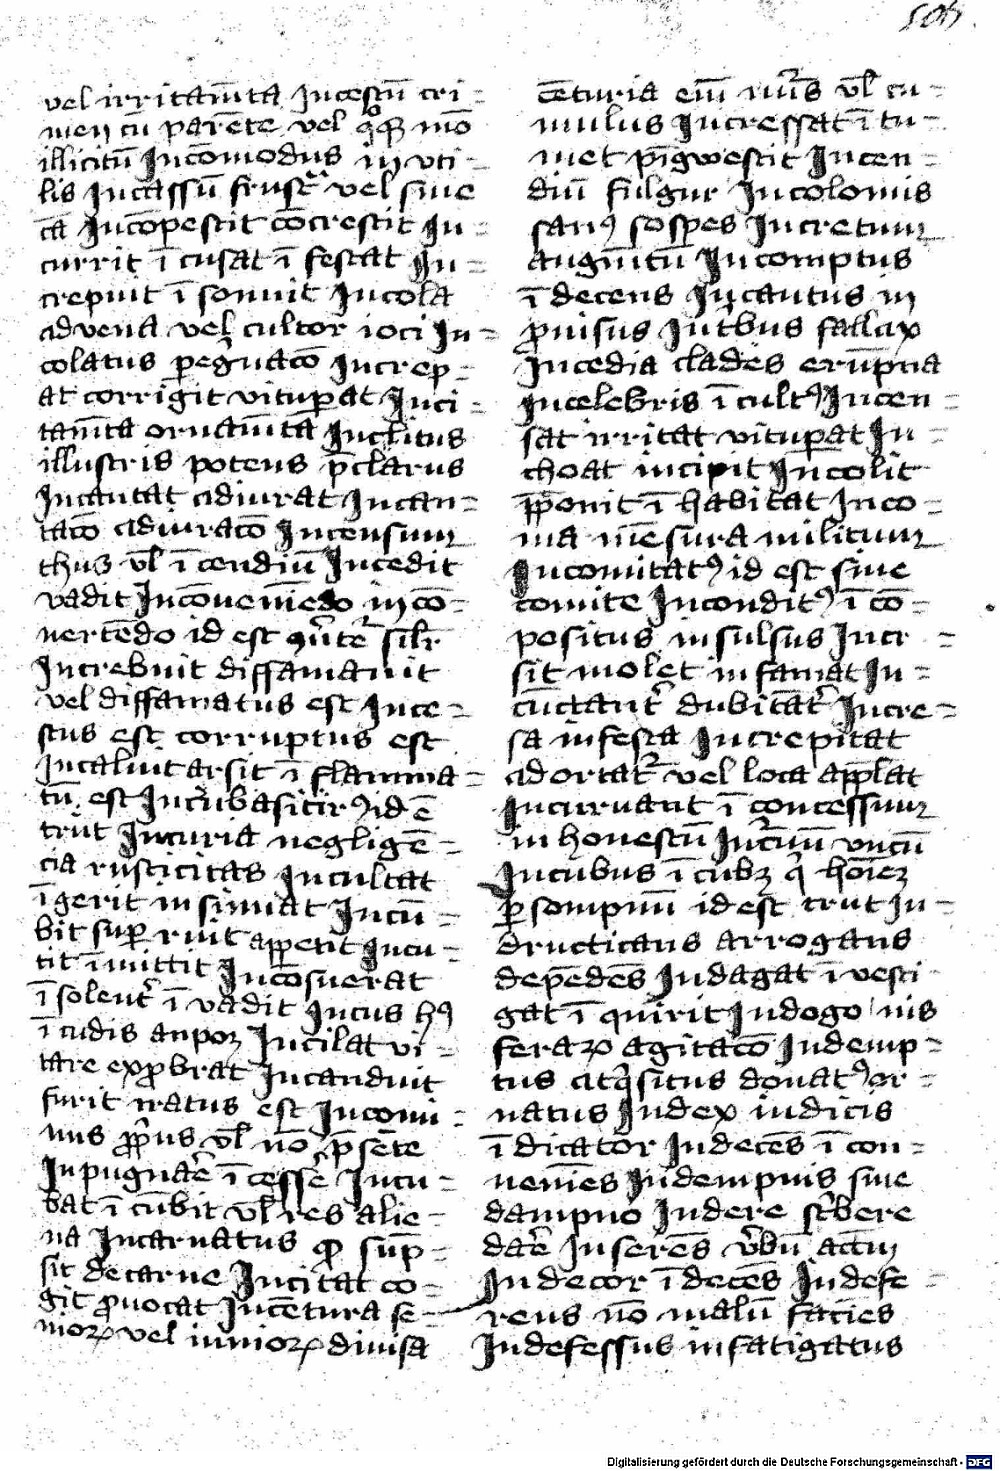 vel irritam̄ta Incestū cri=
men cū parēte vel qͦqꝫ mō
illicitū Incōmodus in vti=
lis Incassū frustᵃ vel sine
cā Incōpescit cōcrescit In=
currit ī cusat ī festat In=
crepuit ī sonuit Incola
advena vel cultor ioci In=
colatus peg̓nacō Increp=
at corrigit vituꝑat Inci=
tam̄ta ornam̄ta Inclitus
illustris potens p̄clarus
Incantat adiurat Incan=
tacō adiuracō Incensum
thus vl̄ ī cendiū Incedit
vadit Incōueniēdo in cō=
uertēdo id est simlr̄
Increbuit diffamauit
vel diffamatus est Ince=
stus est corruptus est
Incaluit arsit ī flamma=
tū est Incubasitirꝰ id ē
trut Incuria negligē=
cia rusticitas Incultat
īgerit insinuat Incū=
bit sup ruit appetit Incu=
tit ī mittit Incōsuerat
ī solent̓ ī vadit Incus hꝰ
ī cudis anpoꝝ Incilat vi=
tare exꝓbrat Incanduit
furit iratus est Incomi=
nus ꝓp̓us vl̄ nō p̄sēte
Inpugnar̄e ī cesse̓ Incu=
bat ī cūbit vl̄ res alie=
na Incarnatus ꝙ sup=
sit decarne Incitat co=
git ꝓuocat Incētura se=
nioꝝ vel iunioꝝ diuisa
cēturia eīm nūs vl̄ cu=
mulus Incressat ī tu=
met pīgwescit Incen=
diū fulgur Incolomis
sanꝰ sospes Incretum
augmtū Incomptus
ī decens Incautus in
ꝓuisus Int̓bus fallax
Incedia clades erūpna
Incelebris ī cultꝰ Incen=
sat irritat vituꝑat In=
choat incipit Incolit
p̄ponit ī habitat Inco=
ma mēsura militum
Incomitatꝰ id est sine
comite Inconditꝰ ī cō=
positus insulsus Incr=
sit molet infamat In=
cūctant̓ dubitāt̓ Incre=
sa infesta Increpitat
adortat̓ vel loca applat
Incuruant ī concessum
inhonestū Inc̓uū vncū
Incubus ī cubꝫ q̓ hoīeꝫ
ꝑ sompnū id est trut In=
dructicans arrogans
depēdēs Indagat ī vesti
gat ī quirit Indogo inis
feraꝝ agitacō Indemp=
tus atq̓situs donatꝰ or=
natus Index iudicis
ī dicator Indecēs ī con=
ueniēs Indempnis sine
dampno Indere sc̓bere
dar̄e Inserēs v̓bū actū
Indecor ī decēs Indefe=
rens nō malū faciēs
Indefessus infatigatus
Digitalisierung gefördert durch die Deutsche Forschungsgemeinschaft - DFG